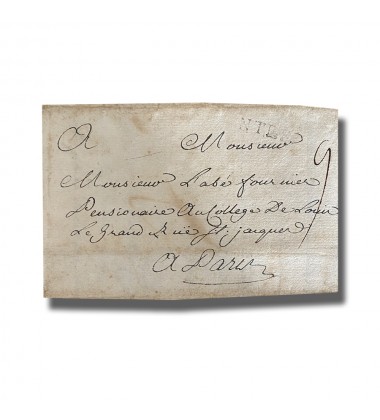 A Monsieur
Monsieur L'abé fournier
Pensionaire Au College De Louis
Le Grand Rüe St; jacques
A Paris
9